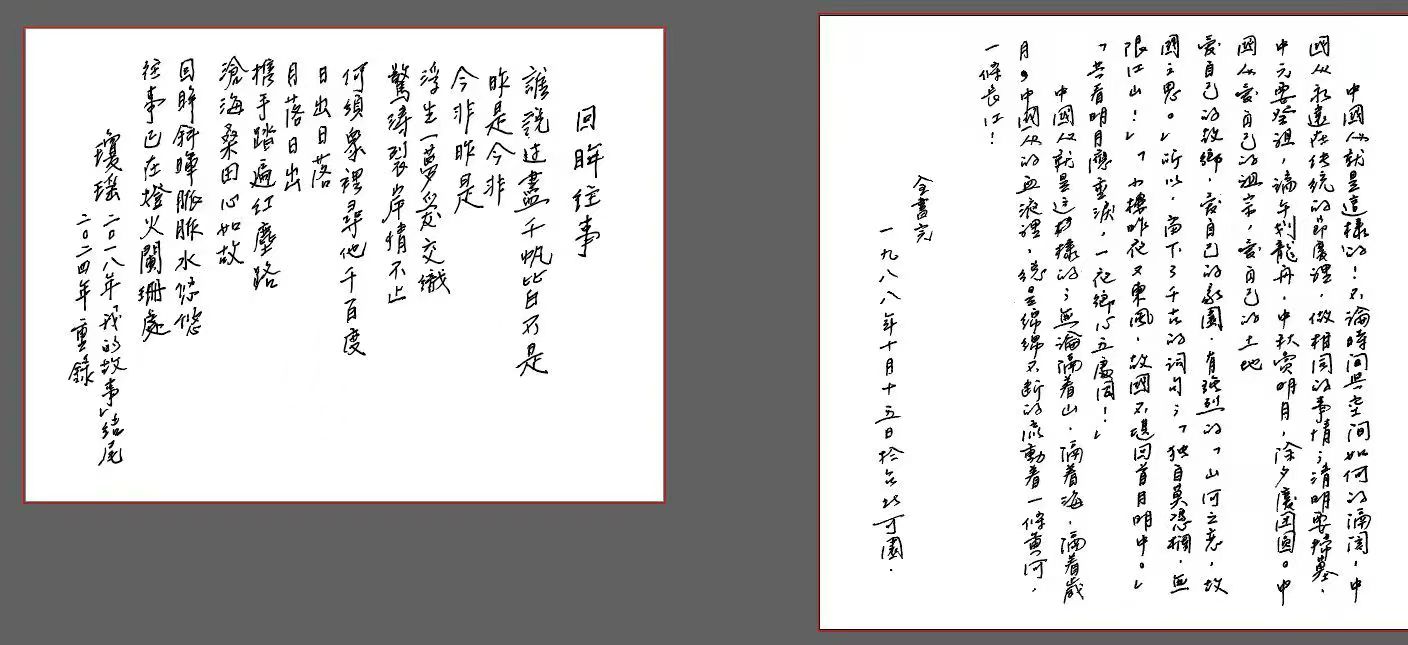 回眸往事
誰說過盡千帆皆不是
昨是今非
今非昨是
浮生一夢愛交織
驚濤裂岸情不止
何須眾裡尋他千百度
日出日落
月落日出
攜手踏遍紅塵路
滄海桑田心如故
回眸斜暉脈脈水悠悠
往事已在燈火闌珊處
瓊瑤 二〇一八年「我的故事」結尾
二〇二四年重錄
中國人就是這樣的!不論時間與空間如何的隔閡,中
國人永遠在傳統的節慶裡,做相同的事情;清明要掃墓,
中元要祭祖,端午划龍舟,中秋賞明月,除夕慶團圓。中
國人愛自己的祖宗,愛自己的土地
愛自己的故鄉,愛自己的家園,有強烈的「山河之戀,故
國之思。」所以,留下了千古的詞句;「獨自莫憑欄,無
限江山!」「小樓昨夜又東風,故國不堪回首月明中。」
「共看明月應垂淚,一夜鄉心五處同!」
中國人就是這樣的;無論隔着山,隔着海,隔着歲
月,中國人的血液裡,總是綿綿不斷的流動着一條黃河,
一條長江!
全書完
一九八八年十月十五日於台北可園.